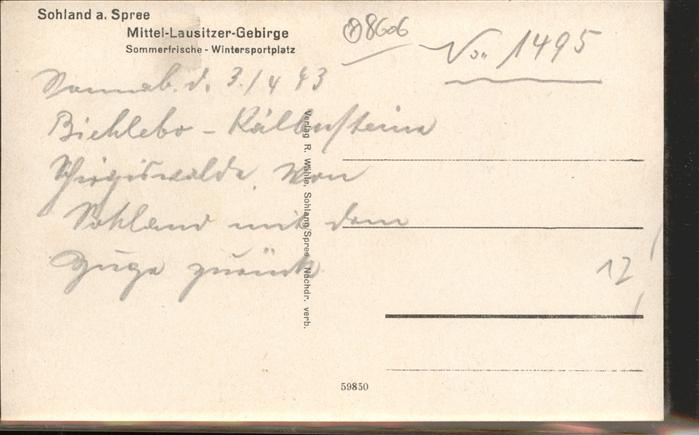 Sohland a. Spree
Mittel-Lausitzer-Gebirge
Sommerfrische - Wintersportplatz
8606
Von 1495
Sonnab. d. 3./4 43
Bieleboh - Kälbersteine
Schirgiswalde. Von
Sohland mit dem
Zuge zurück
Verlag R. Wähle, Sohland/Spree Nachdr. verb.
12
59850